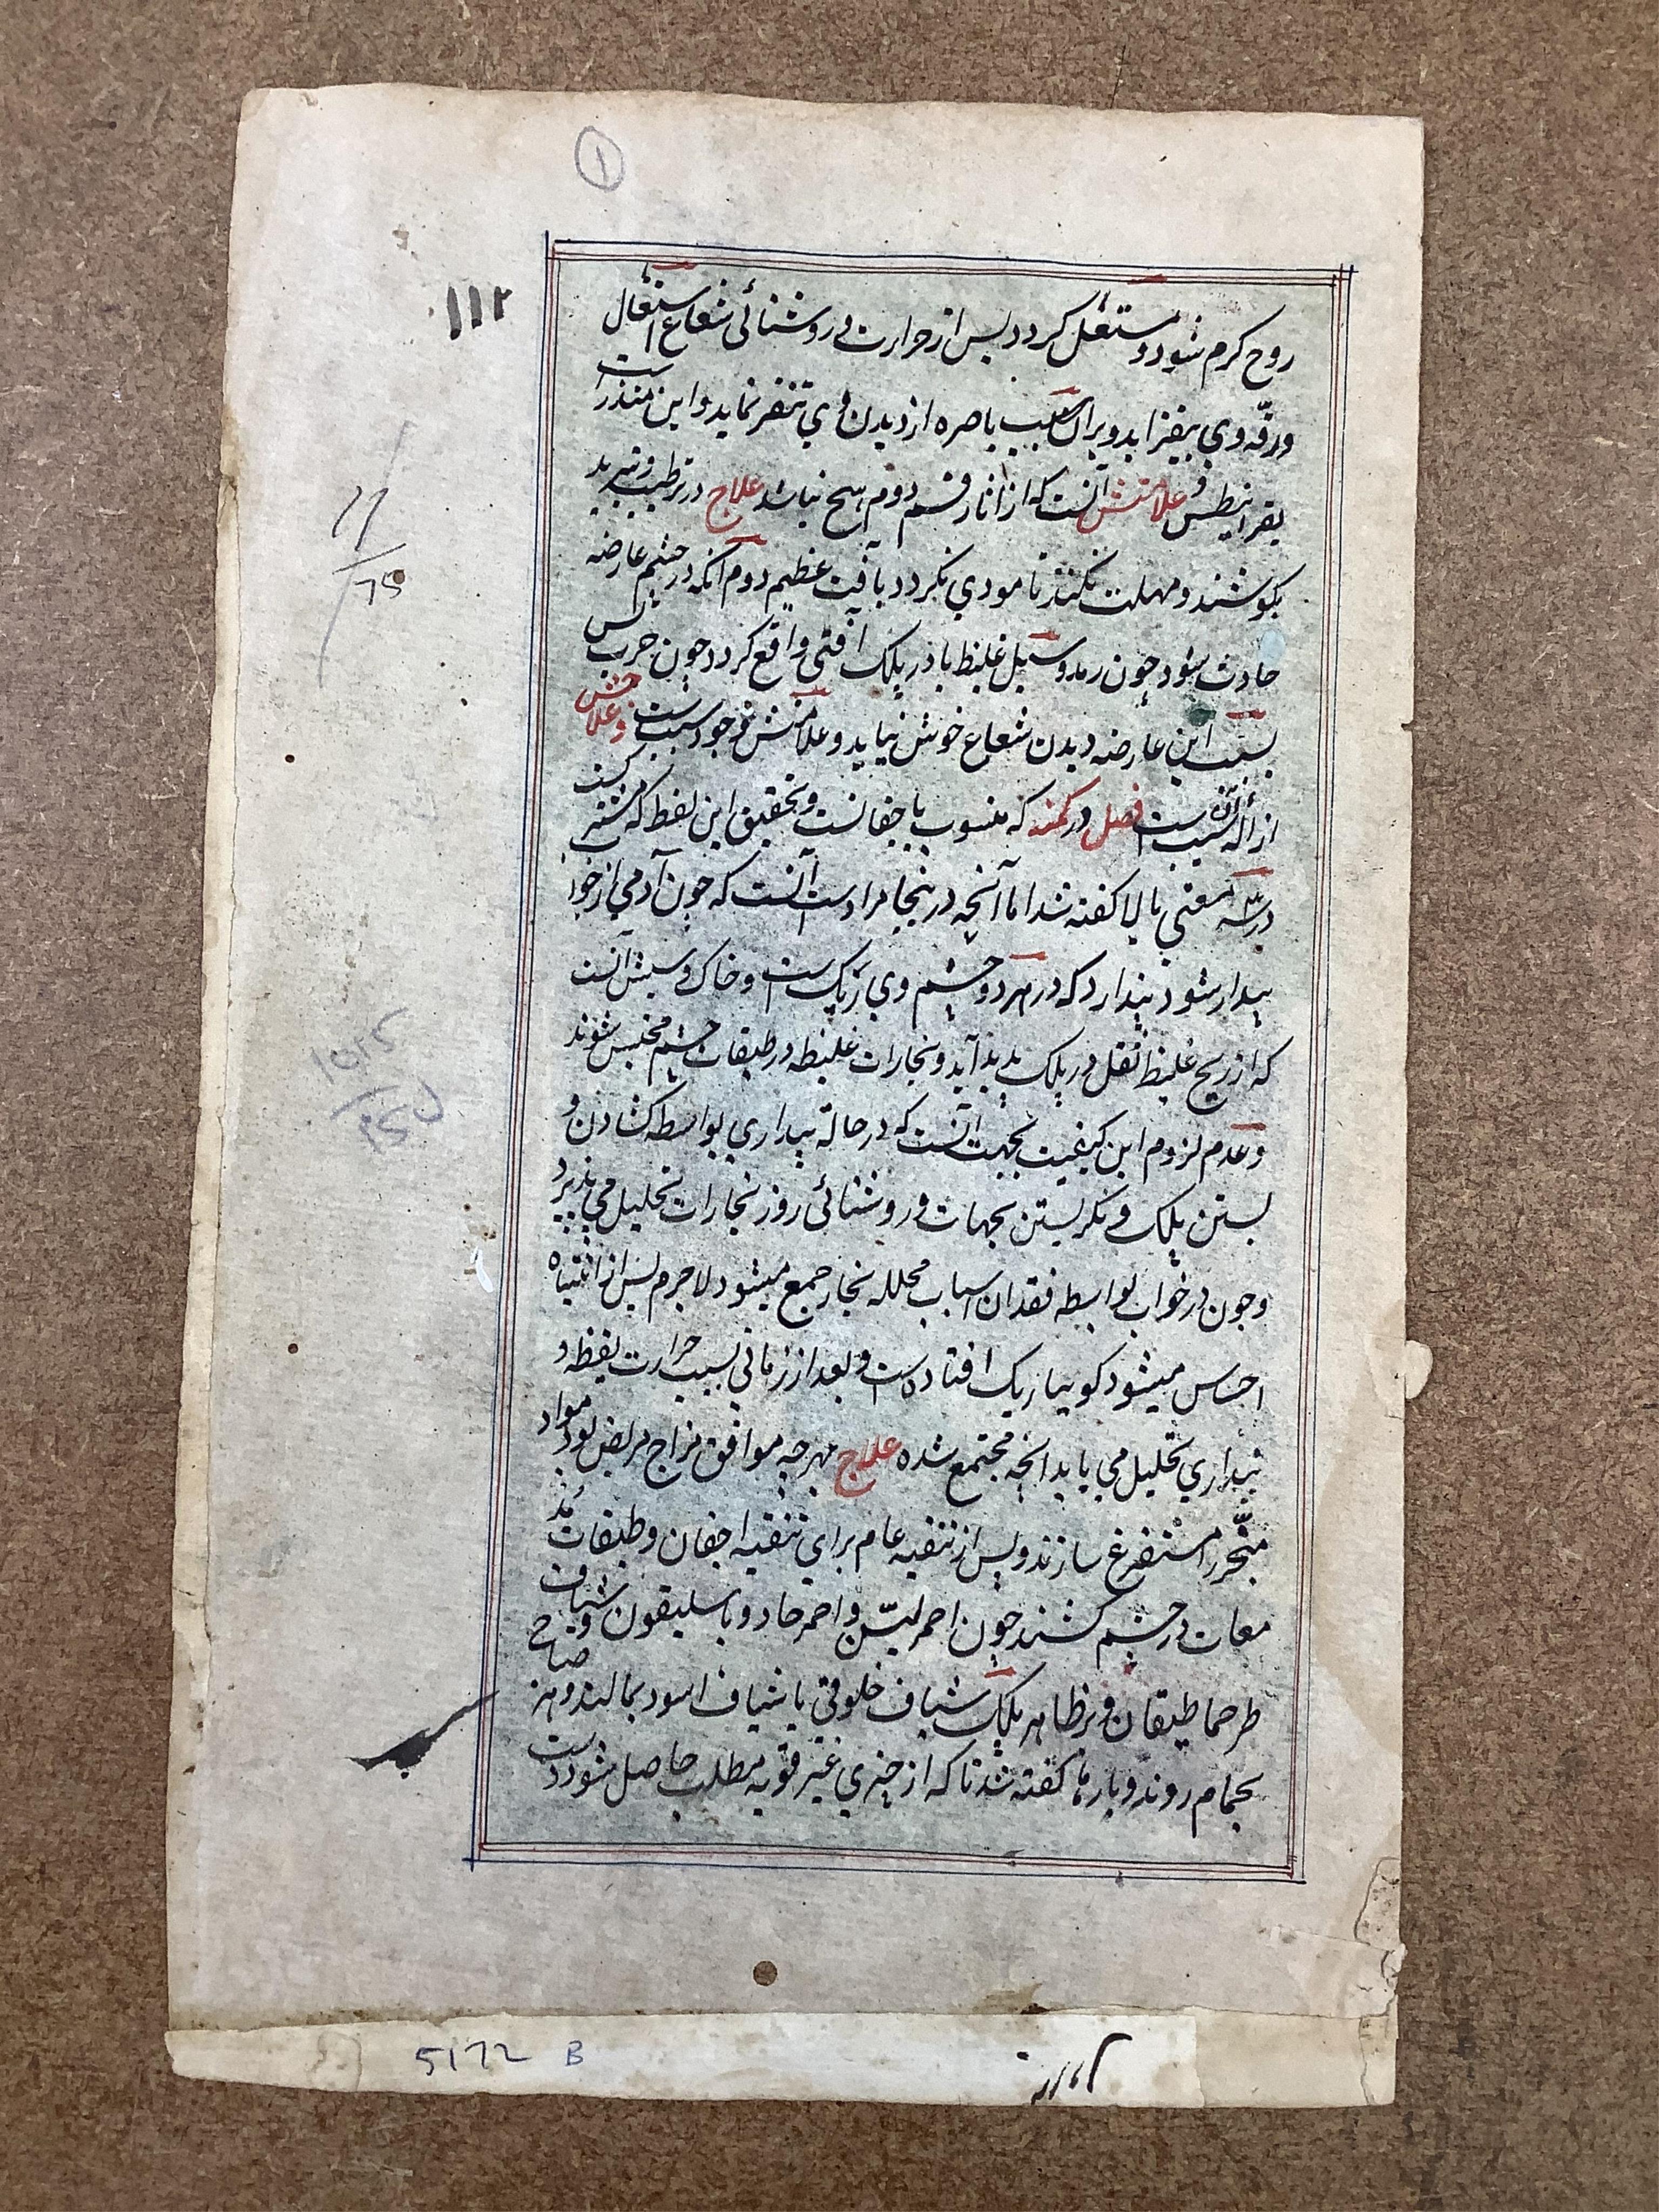 ۱
۱۱۲
روح کرم شود و مشتعل کردد پس از حرارت و روشنائی شعاع اشتعال
ورقّه وي بیفزاید و بران سبب باصره از دیدن وي تنفر نماید و این منذر است
بقرانیطس و علامتش آنست که از آثار قسم دوم هیچ نباشد علاج در ترطیب و تبرید
بکوشند و مهلت نکنند تا مودي نکردد بآفت عظیم دوم آنکه در چشم عارضه
حادث شود چون رمد و سبل غلیظ یا در پلک آفتی واقع کردد چون جرب پس
بسبب این عارضه دیدن شعاع خوش نیاید و علامتش وجود سبب است و علاجش
ازاله سبب است فصل در کمنه که منسوب باجفانست و تحقیق این لفظ که مشترکست
در سه معنی بالا کفته شد اما آنچه درینجا مراد است آنست که چون آدمي از خواب
بیدار شود پندارد که در هر دو چشم وي ریک است و خاک و سببش آنست
که از ریح غلیظ ثقل در پلک پدید آید و بخارات غلیظه در طبقات چشم محتبس شوند
و عدم لزوم این کیفیت بجهت آنست که در حالة بیداري بواسطه کشادن و
بستن پلک و نکریستن بجهات و روشنائی روز بخارات تحلیل مي پذیرد
و چون در خواب بواسطه فقدان اسباب محلله بخار جمع میشود لاجرم پس از انتباه
احساس میشود کویا ریک افتاده است و بعد از زمانی بسبب حرارت یقظه و
بیداري تحلیل مي یابد آنچه مجتمع شده علاج بهر چه موافق مزاج مریض بود مواد
متبخّر را مستفرغ سازند و پس از تنقیه عام براي تنقیه اجفان و طبقات مد
معات در چشم کشند چون احمر لیّن و احمر حاد و باسلیقون و شیاف
طرحماطیقان و بر ظاهر پلک شیاف خلوقی یا شیاف اسود بمالند و هر صباح
بحمام روند و بارها کفته شد تا که از چیزي غیر قویه مطلب حاصل شود دست
11
75
1015
5172 B